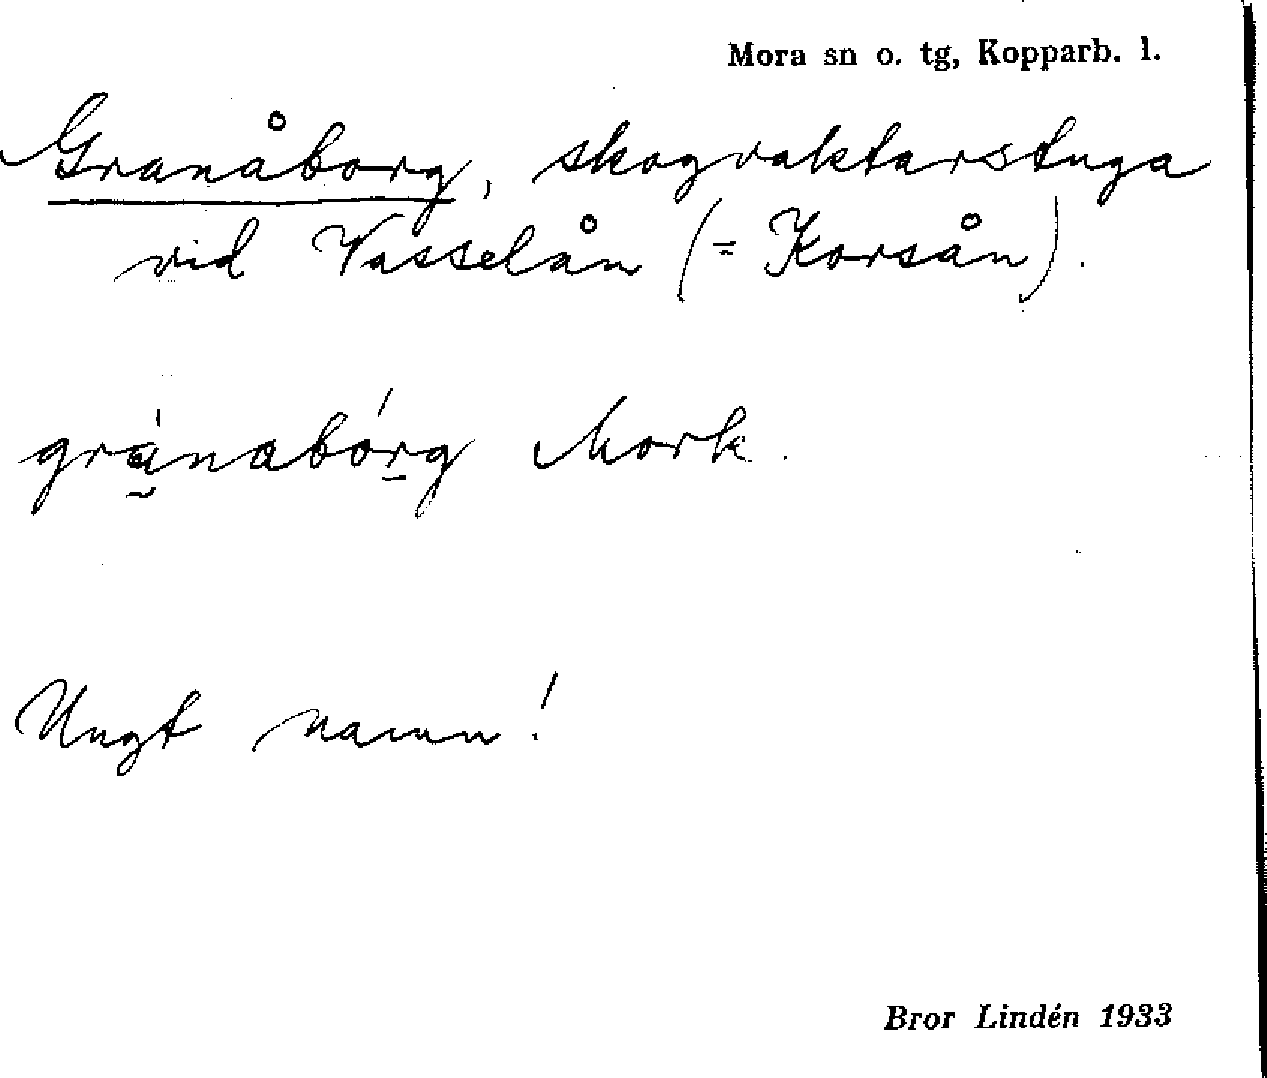 Mora sn o. tg, Kopparb. l.
Granåborg, skogvaktarstuga
vid Vasselån (= Korsån).
grànabórg Mork.
Ungt namn!
Bror Lindén 1933